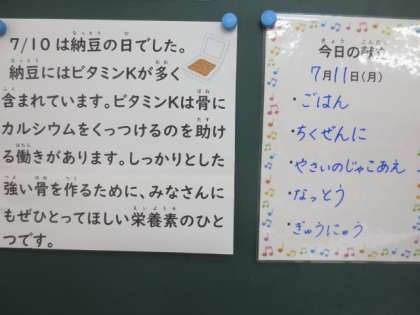 7/10は納豆の日でした。
納豆にはビタミンKが多く
含まれています。ビタミンKは骨に
カルシウムをくっつけるのを助け
る働きがあります。しっかりとした
強い骨を作るために、みなさんに
もぜひとってほしい栄養素のひと
つです。
今日の献立
7月11日(月)
・ごはん
・ちくぜんに
・やさいのじゃこあえ
・なっとう
・ぎゅうにゅう